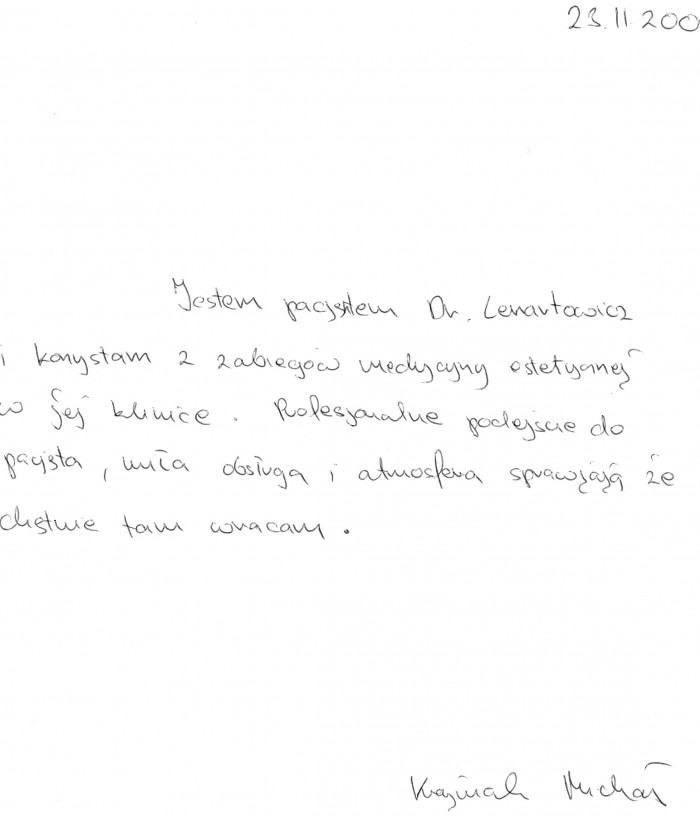 23.11.200
Jestem pacjentem Dr. Lenartowicz
i korzystam z zabiegów medycyny estetycznej
w jej klinice. Profesjonalne podejście do
pacjęta, miła obsługa i atmosfera sprawiają że
chętnie tam wracam.
Michał